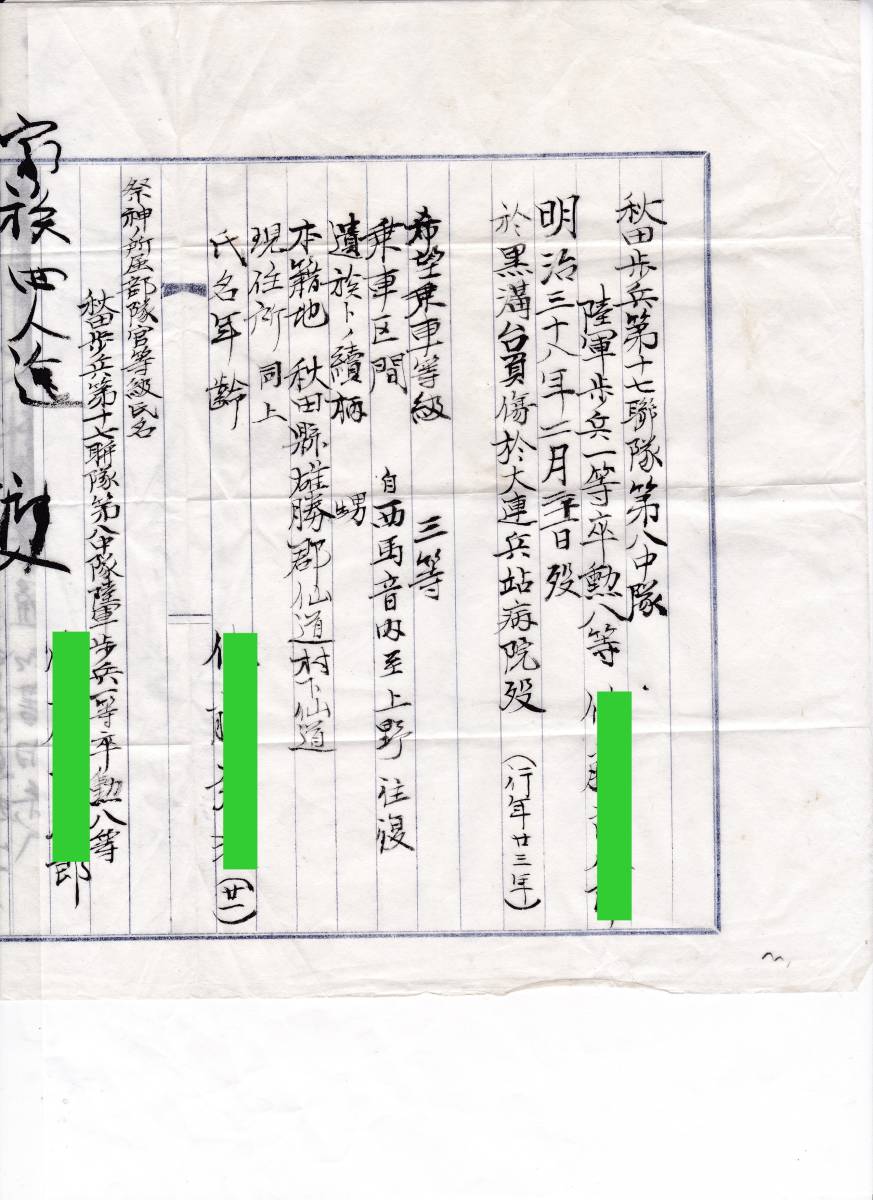 秋田歩兵第十七聯隊第八中隊
陸軍歩兵一等卒勲八等
明治三十八年二月 日歿
於黒溝台負傷於大連兵站病院歿 (行年廿三年)
希望乗車等級 三等
乗車区間 自西馬音内至上野往復
遺族トノ續柄 甥
本籍地 秋田縣雄勝郡仙道村下仙道
現住所 同上
氏名年齢 (廿一)
祭神ノ所属部隊官等級氏名
秋田歩兵第十七聯隊第八中隊陸軍歩兵一等卒勲八等
郎
家族四人迄